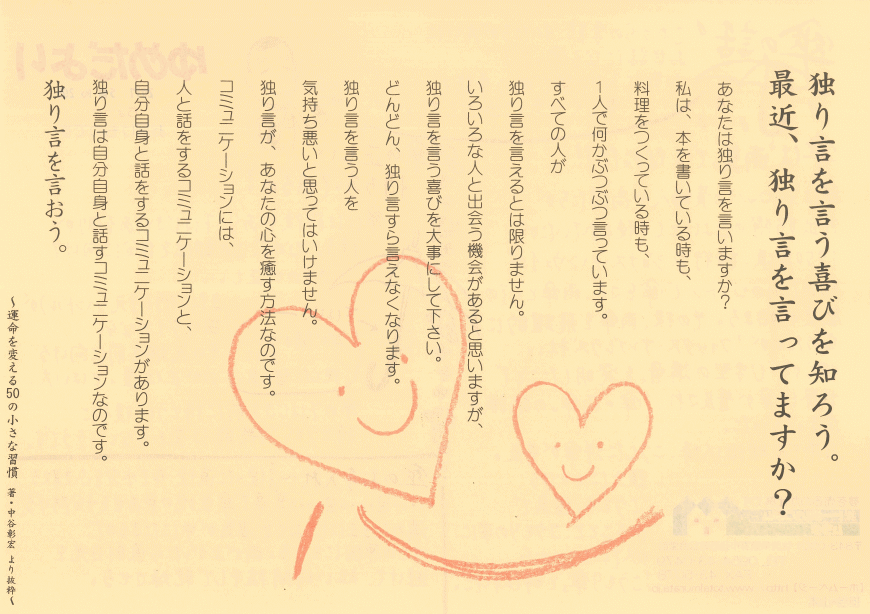 独り言を言う喜びを知ろう。
最近、独り言を言ってますか？
あなたは独り言を言いますか？
私は、本を書いている時も、
料理をつくっている時も、
1人で何かぶつぶつ言っています。
すべての人が
独り言を言えるとは限りません。
いろいろな人と出会う機会があると思いますが、
独り言を言う喜びを大事にして下さい。
どんどん、独り言すら言えなくなります。
独り言を言う人を
気持ち悪いと思ってはいけません。
独り言が、あなたの心を癒す方法なのです。
コミュニケーションには、
人と話をするコミュニケーションと、
自分自身と話をするコミュニケーションがあります。
独り言は自分自身と話すコミュニケーションなのです。
独り言を言おう。
～運命を変える50の小さな習慣 著・中谷彰宏 より抜粋～
ゆめだより